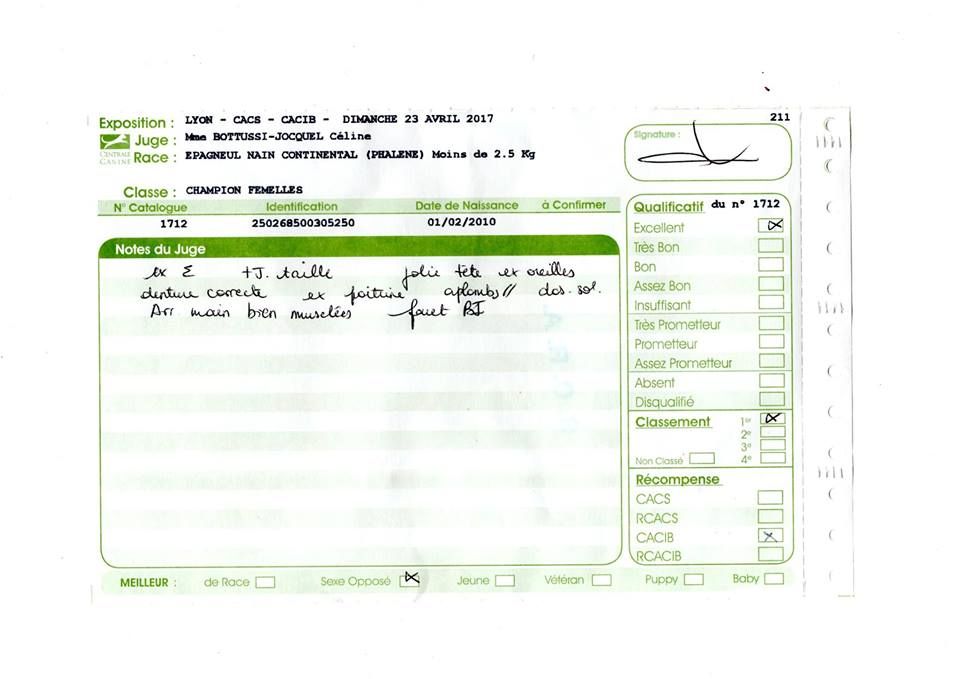 211
Exposition : LYON - CACS - CACIB - DIMANCHE 23 AVRIL 2017
Juge : Mme BOTTUSSI-JOCQUEL Céline
CENTRALE CANINE
Race : EPAGNEUL NAIN CONTINENTAL (PHALENE) Moins de 2.5 Kg
Signature :
Classe : CHAMPION FEMELLES
N° Catalogue Identification Date de Naissance à Confirmer
1712 250268500305250 01/02/2010
Notes du Juge
ex Σ +J. taille jolie tête ex oreilles
denture correcte ex poitrine aplombs // dos. sol.
Arr main bien musclées fouet BI
Qualificatif du n° 1712
Excellent
Très Bon
Bon
Assez Bon
Insuffisant
Très Prometteur
Prometteur
Assez Prometteur
Absent
Disqualifié
Classement 1er
2e
3e
Non Classé 4e
Récompense
CACS
RCACS
CACIB
RCACIB
MEILLEUR : de Race Sexe Opposé Jeune Vétéran Puppy Baby